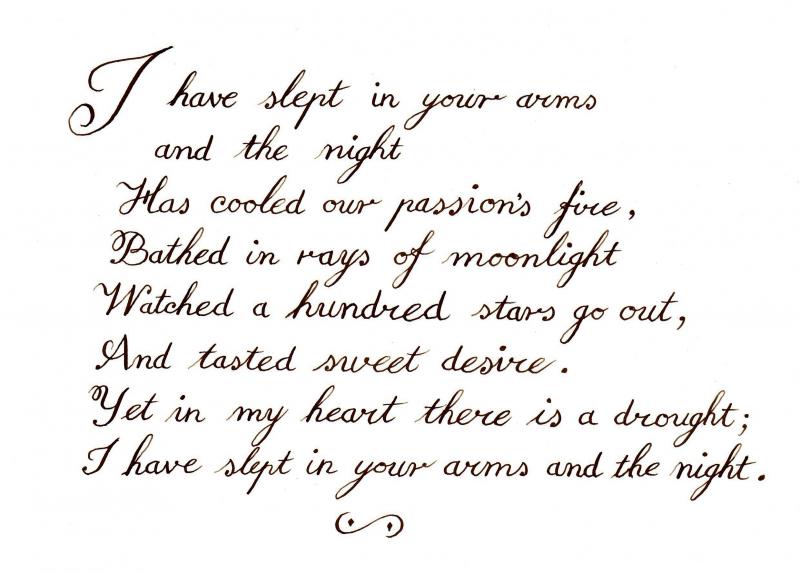 I have slept in your arms
and the night
Has cooled our passion's fire,
Bathed in rays of moonlight
Watched a hundred stars go out,
And tasted sweet desire.
Yet in my heart there is a drought;
I have slept in your arms and the night.